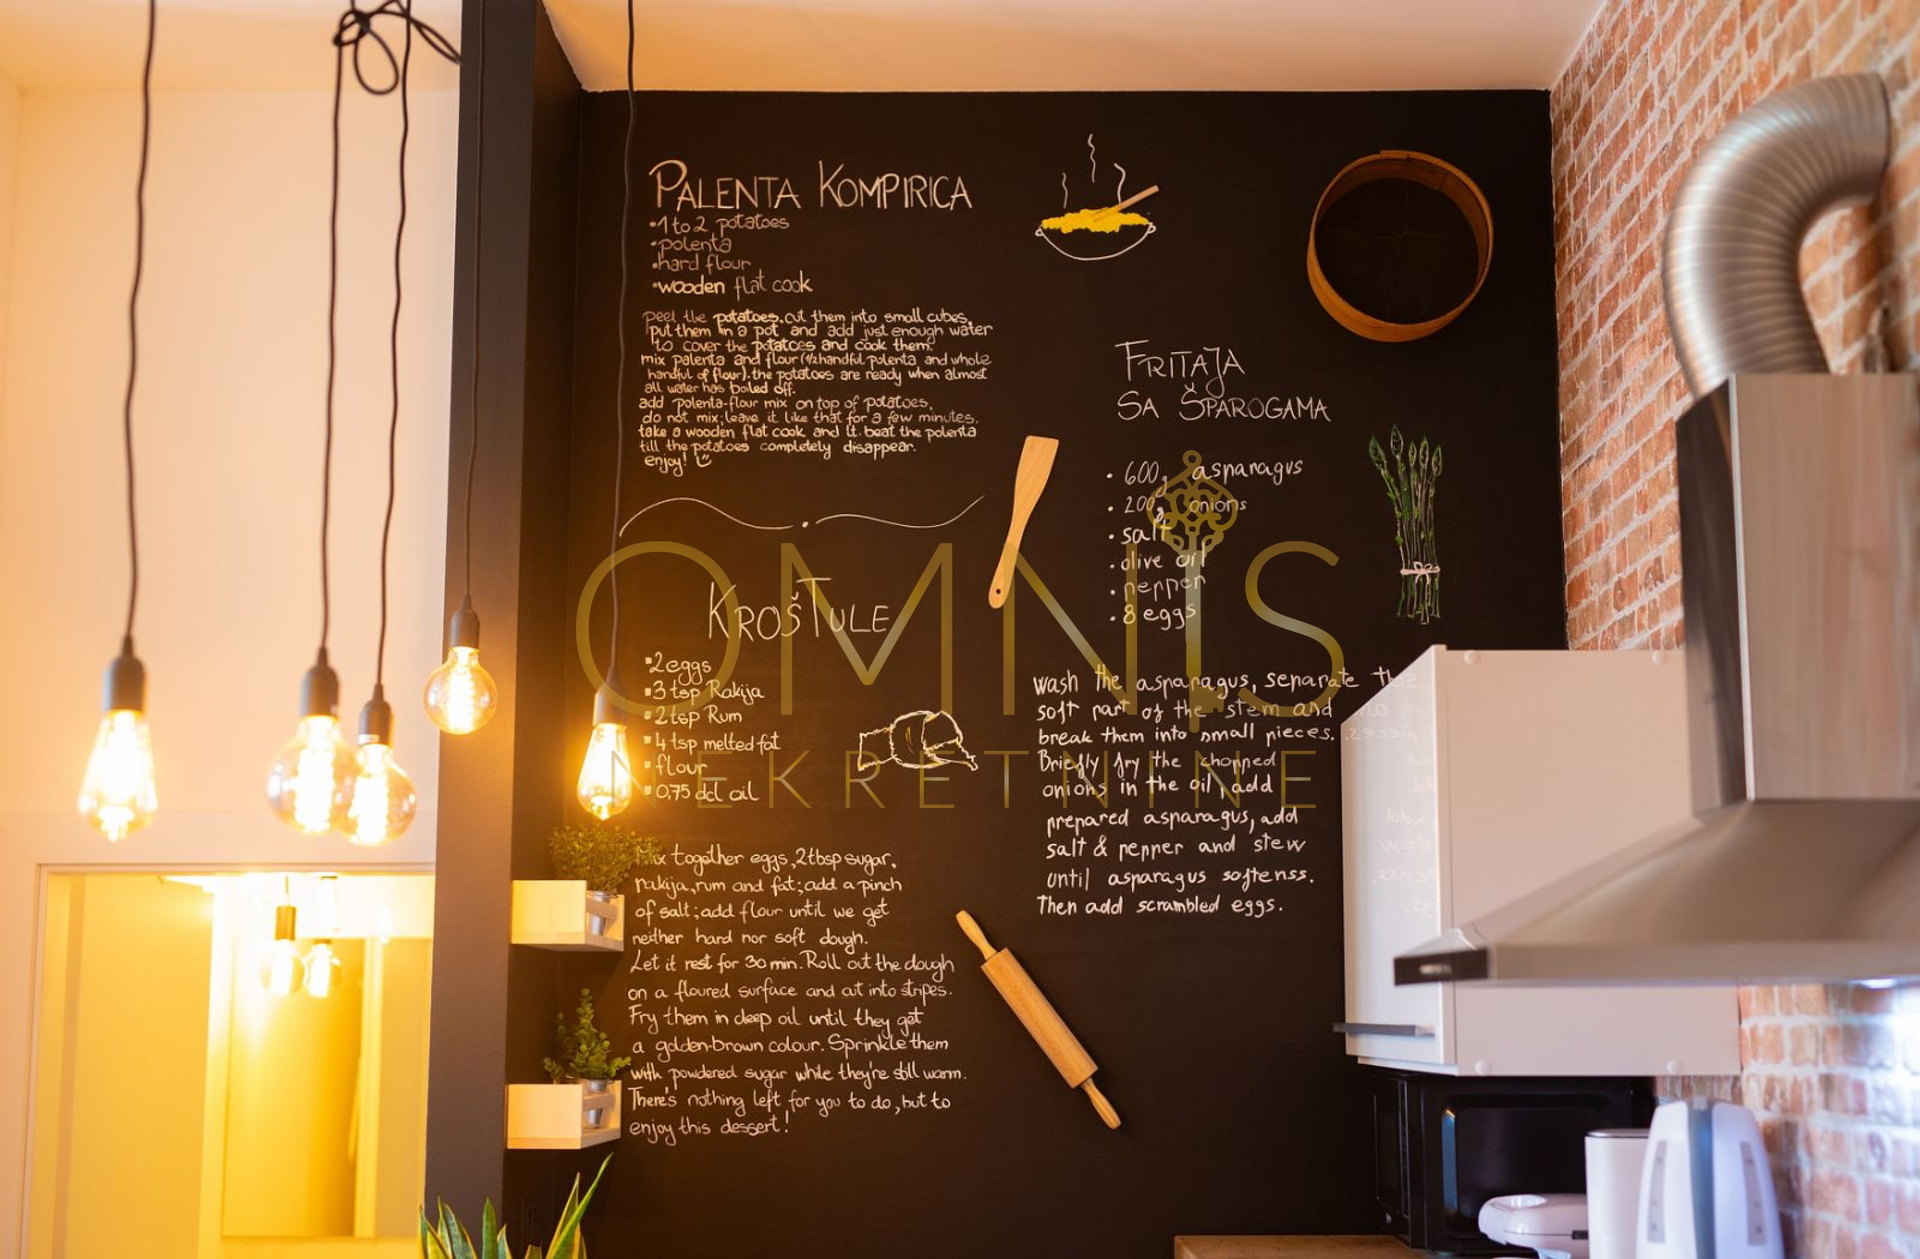 PALENTA KOMPIRICA
•1 to 2 potatoes
•polenta
•hard flour
•wooden flat cook
peel the potatoes, cut them into small cubes,
put them in a pot and add just enough water
to cover the potatoes and cook them.
mix palenta and flour (1/2 handful polenta and whole
handful of flour). the potatoes are ready when almost
all water has boiled off.
add polenta-flour mix on top of potatoes,
do not mix; leave it like that for a few minutes.
take a wooden flat cook and lt. beat the polenta
till the potatoes completely disappear.
enjoy!
KROŠTULE
•2 eggs
•3 tsp Rakija
•2 tsp Rum
•4 tsp melted fat
•flour
•0,75 dcl oil
Mix together eggs, 2 tbsp sugar,
rakija, rum and fat; add a pinch
of salt; add flour until we get
neither hard nor soft dough.
Let it rest for 30 min. Roll out the dough
on a floured surface and cut into stripes.
Fry them in deep oil until they get
a golden-brown colour. Sprinkle them
with powdered sugar while they're still warm.
There's nothing left for you to do, but to
enjoy this dessert!
FRITAJA
SA ŠPAROGAMA
• 600g asparagus
• 200g onions
• salt
• olive oil
• pepper
• 8 eggs
Wash the asparagus, separate the
soft part of the stem and
break them into small pieces.
Briefly fry the chopped
onions in the oil, add
prepared asparagus, add
salt & pepper and stew
until asparagus softenss.
Then add scrambled eggs.
OMNIS
NEKRETNINE